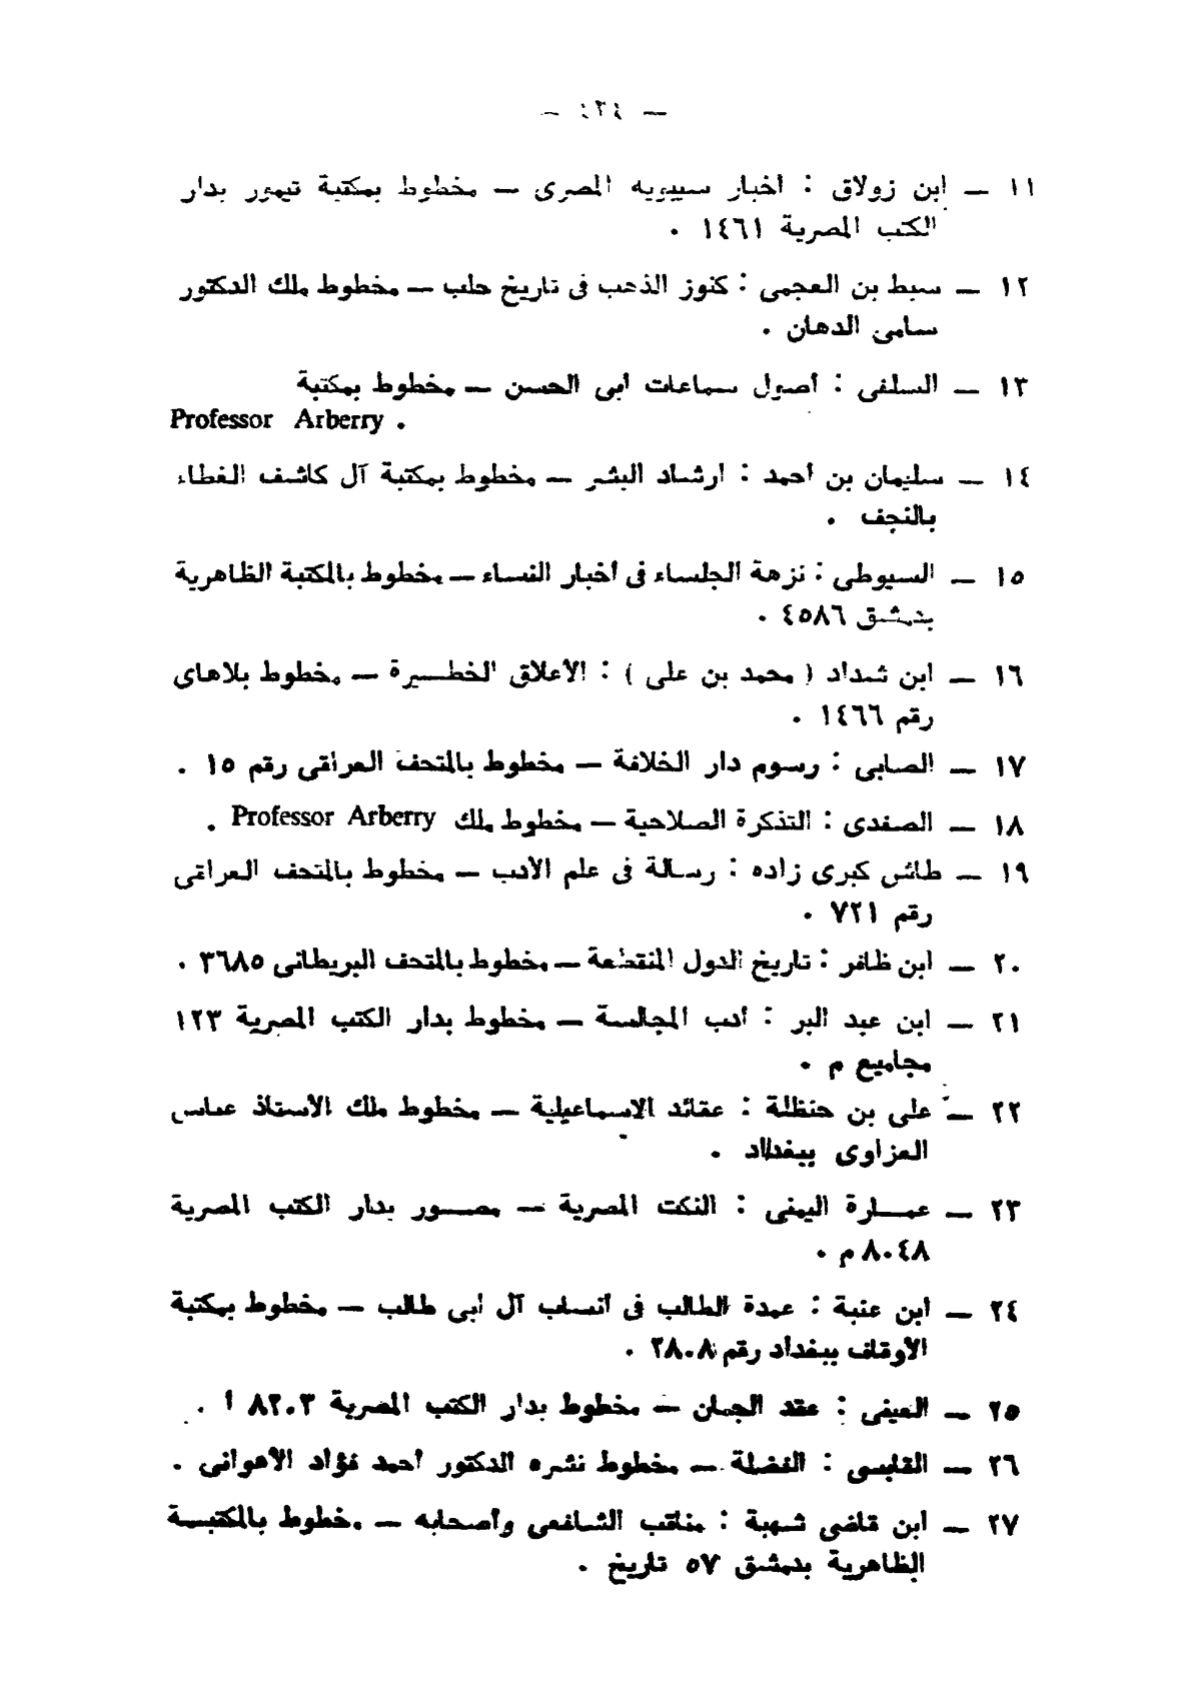 ١١ — ابن زولاق : اخبار سيبويه المصرى — مخطوط بمكتبة تيمور بدار
الكتب المصرية ١٤٦١ .
١٢ — سبط بن العجمى : كنوز الذهب فى تاريخ حلب — مخطوط ملك الدكتور
سامى الدهان .
١٣ — السلفى : أصول سماعات ابى الحسن — مخطوط بمكتبة
Professor Arberry .
١٤ — سليمان بن احمد : ارشاد البشر — مخطوط بمكتبة آل كاشف الغطاء
بالنجف .
١٥ — السيوطى : نزهة الجلساء فى اخبار النساء — مخطوط بالمكتبة الظاهرية
بدمشق ٤٥٨٦ .
١٦ — ابن شداد ( محمد بن على ) : الأعلاق الخطيرة — مخطوط بلاهاى
رقم ١٤٦٦ .
١٧ — الصابى : رسوم دار الخلافة — مخطوط بالمتحف العراقى رقم ١٥ .
١٨ — الصفدى : التذكرة الصلاحية — مخطوط ملك Professor Arberry .
١٩ — طاش كبرى زاده : رسالة فى علم الأدب — مخطوط بالمتحف العراقى
رقم ٧٢١ .
٢٠ — ابن ظافر : تاريخ الدول المنقطعة — مخطوط بالمتحف البريطانى ٣٦٨٥ .
٢١ — ابن عبد البر : أدب المجالسة — مخطوط بدار الكتب المصرية ١٢٣
مجاميع م .
٢٢ — على بن حنظلة : عقائد الاسماعيلية — مخطوط ملك الأستاذ عباس
العزاوى ببغداد .
٢٣ — عمارة اليمنى : النكت المصرية — مصور بدار الكتب المصرية
٨٠٤٨ م .
٢٤ — ابن عنبة : عمدة الطالب فى أنساب آل ابى طالب — مخطوط بمكتبة
الأوقاف ببغداد رقم ٢٨٠٨ .
٢٥ — العينى : عقد الجمان — مخطوط بدار الكتب المصرية ٨٢٠٣ أ .
٢٦ — القابسى : الفضلة — مخطوط نشره الدكتور أحمد فؤاد الأهوانى .
٢٧ — ابن قاضى شهبة : مناقب الشافعى وأصحابه — مخطوط بالمكتبة
الظاهرية بدمشق ٥٧ تاريخ .